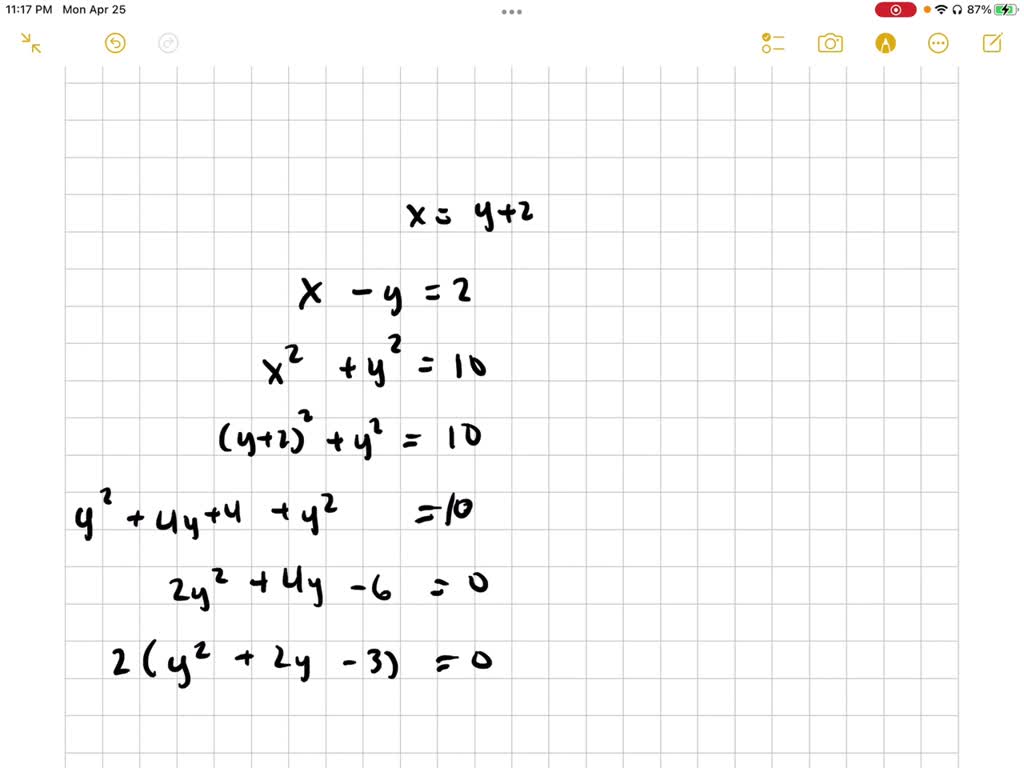 11:17 PM Mon Apr 25
87%
x = y+2
x - y = 2
x² + y² = 10
(y+2)² + y² = 10
y² + 4y + 4 + y² = 10
2y² + 4y - 6 = 0
2(y² + 2y - 3) = 0